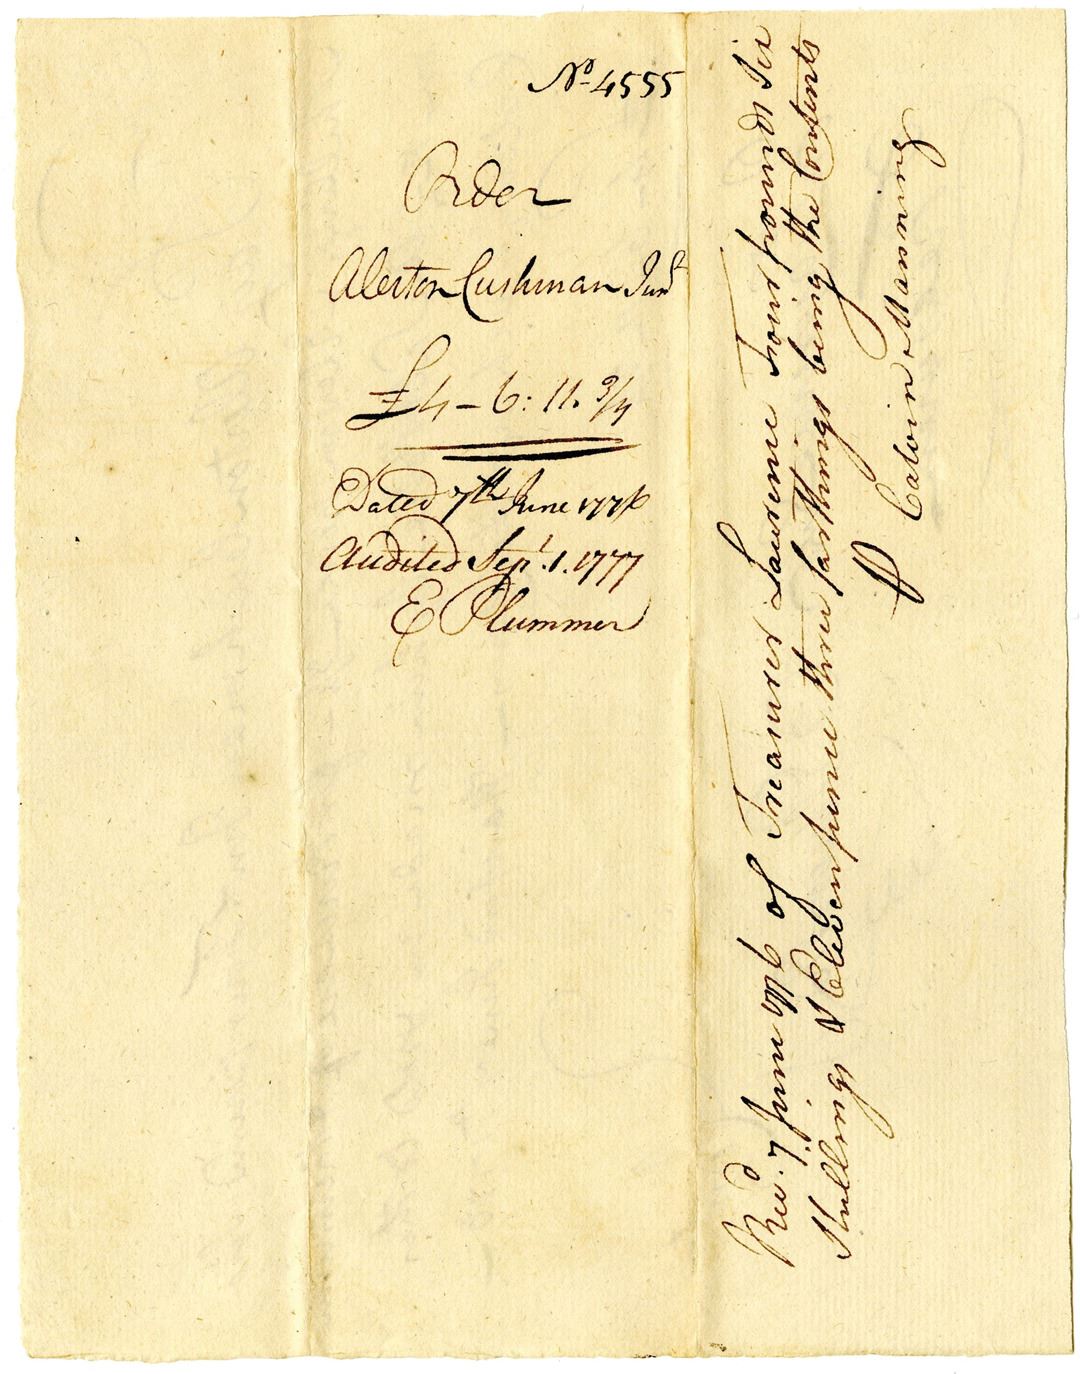 No 4555
Order
Alerton Cushman Junr
£4 - 6: 11. 3/4
Dated 7th June 1776
Audited Sepr. 1. 1777
E Plummer
Recd. 7 June 1776 of Treasurer Lawrence Four pounds Six
Shillings & Eleven pence three farthings being the Contents
P Calvin Manning